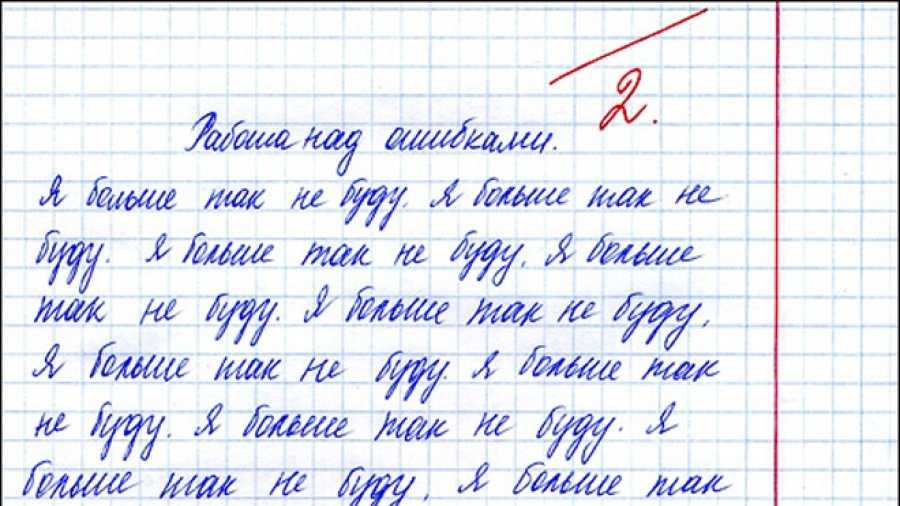 2.
Работа над ошибками.
Я больше так не буду. Я больше так не
буду. Я больше так не буду. Я больше
так не буду. Я больше так не буду.
Я больше так не буду. Я больше так
не буду. Я больше так не буду. Я
больше так не буду. Я больше так